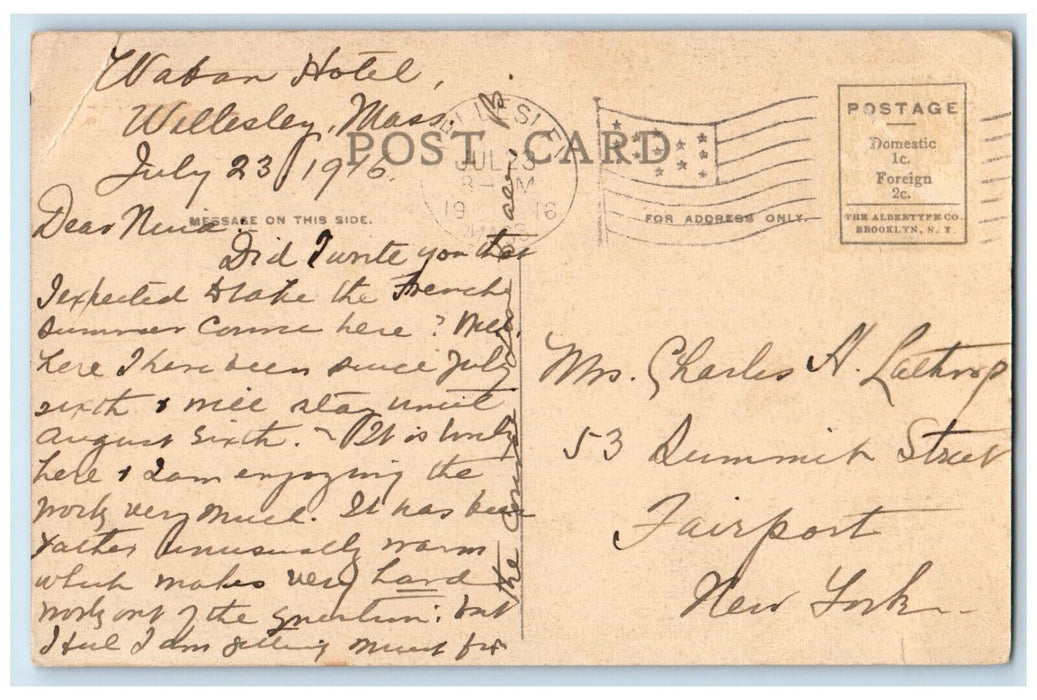 Waban Hotel,
Wellesley, Mass.
July 23, 1916.
POST CARD
MESSAGE ON THIS SIDE.
FOR ADDRESS ONLY.
Dear Nina
Did I write you that
I expected to take the French
summer course here? Well,
here I have been since July
sixth & will stay until
August sixth. - It is lovely
here & I am enjoying the
work very much. It has been
rather unusually warm
which makes very hard
work out of the question: but
I feel I am getting much for
the course
WELLESLEY
JUL 23
8- M
1916
MASS
POSTAGE
Domestic
1c.
Foreign
2c.
THE ALBERTYPE CO.
BROOKLYN, N. Y.
Mrs. Charles H. Lathrop
53 Summit Street
Fairport
New York